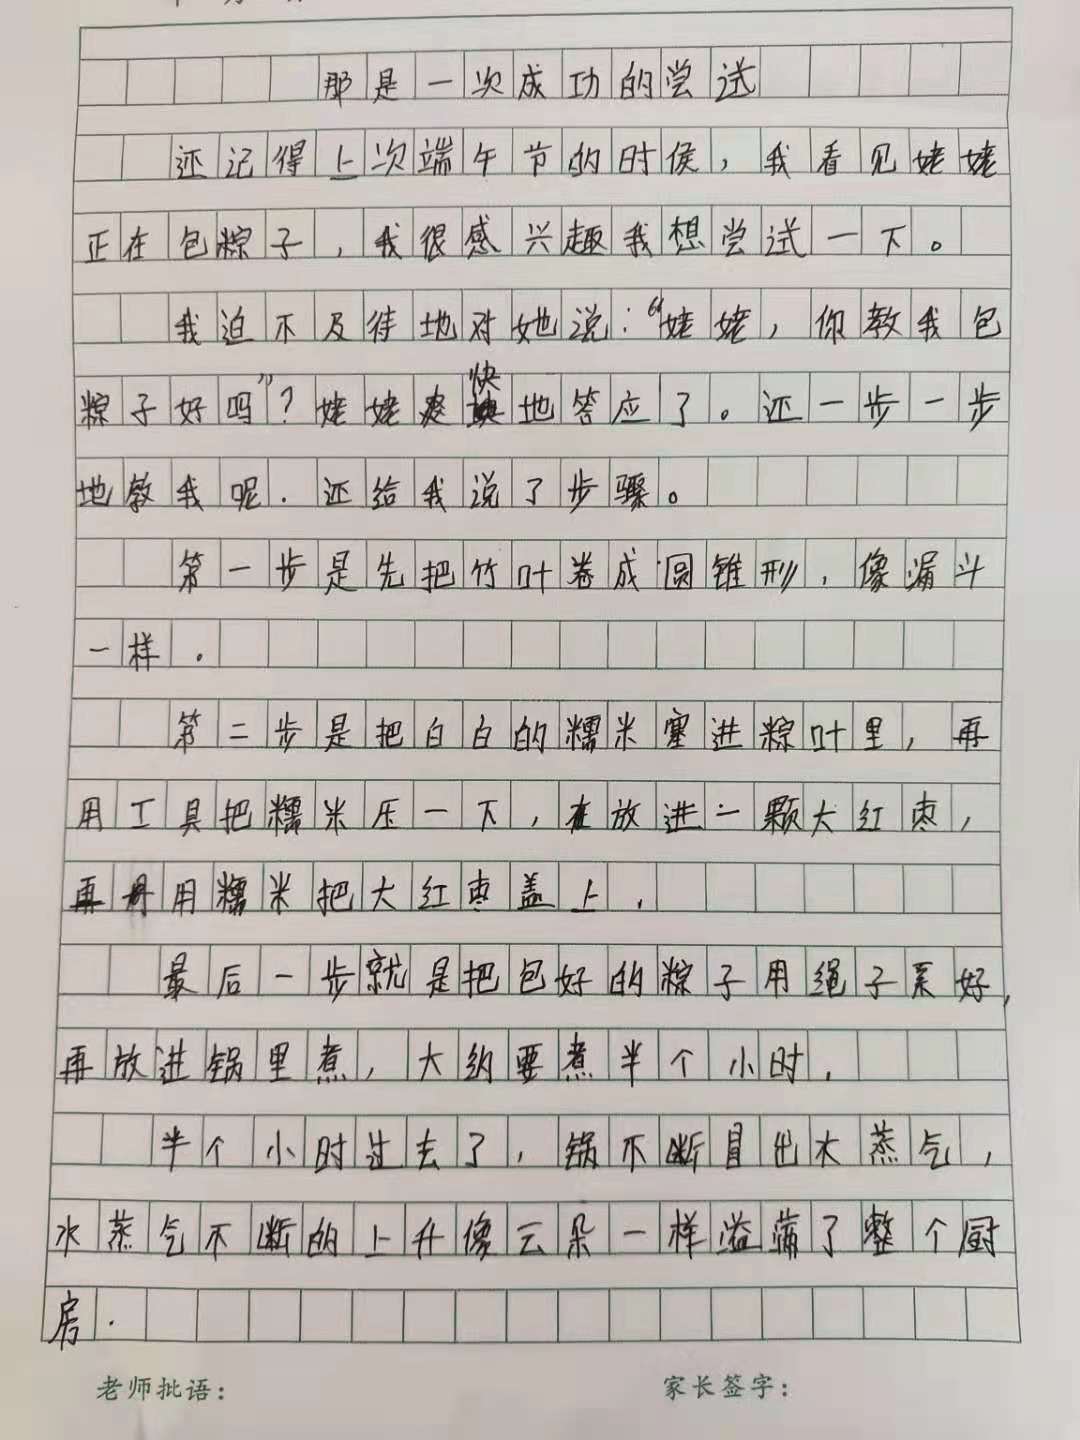 那是一次成功的尝试
还记得上次端午节的时侯，我看见姥姥
正在包粽子，我很感兴趣我想尝试一下。
我迫不及待地对她说：“姥姥，你教我包
粽子好吗”？姥姥爽快地答应了。还一步一步
地教我呢．还给我说了步骤。
第一步是先把竹叶卷成圆锥形，像漏斗
一样．
第二步是把白白的糯米塞进粽叶里，再
用工具把糯米压一下，在放进一颗大红枣，
再用糯米把大红枣盖上．
最后一步就是把包好的粽子用绳子系好，
再放进锅里煮，大约要煮半个小时．
半个小时过去了，锅不断冒出水蒸气，
水蒸气不断的上升像云朵一样溢满了整个厨
房．
老师批语：
家长签字：